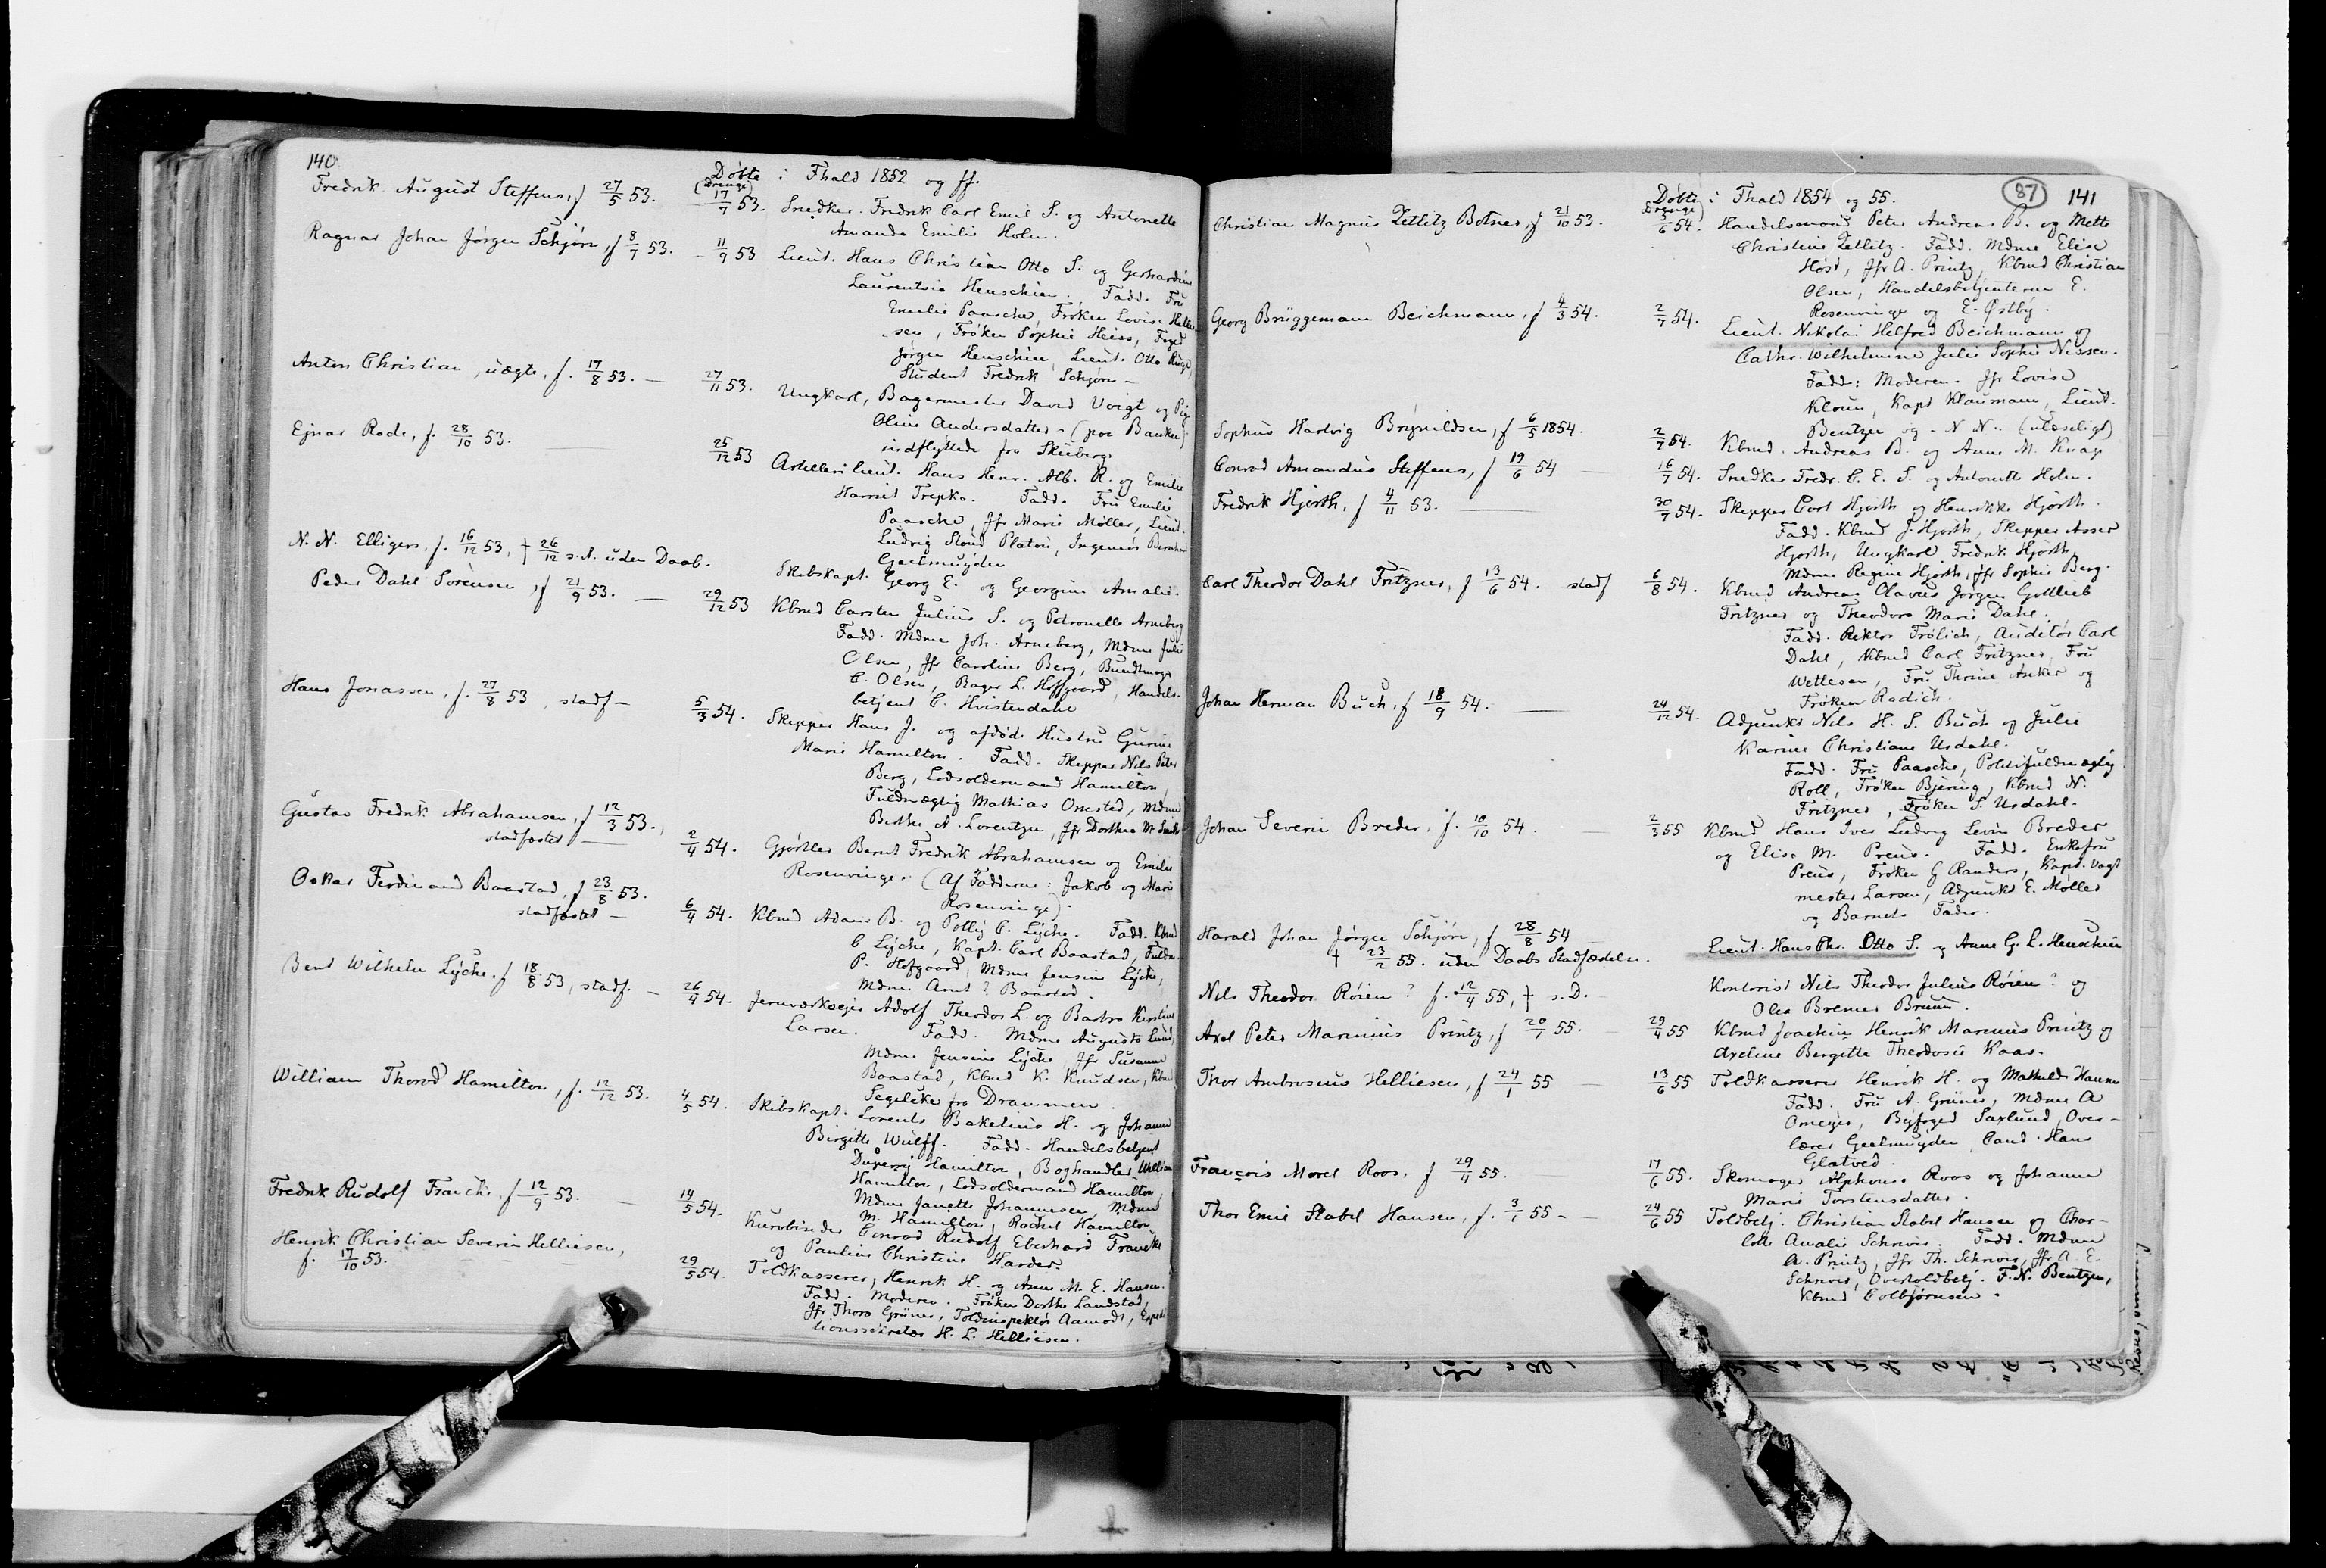 140
Døbte i Fhald 1852 og ff.
(Drenge)
Fredrik August Steffens, f 27/5 53. 17/7 53. Snedker Fredrik Carl Emil S. og Antonette
Amanda Emilie Holm.
Ragnar Johan Jørgen Schjørn, f 8/7 53. – 11/9 53 Lieut. Hans Christian Otto S. og Gerhardine
Laurentsia Henschien. Fadd. Fru
Emilie Paasche, Frøken Lovise Hellie-
sen, Frøken Sophie Heiss, Foged
Jørgen Henschien, Lieut. Otto Ruge,
Student Fredrik Schjørn –
Anton Christian, uægte, f. 17/8 53. — 27/11 53. Ungkarl, Bagermester David Voigt og Pig
Oline Andersdatter – (paa Banken)
indflyttede fra Skieberg.
Ejnar Rode, f. 28/10 53. — 25/12 53 Artillerilieut. Hans Henr. Alb. R. og Emilie
Harriet Trepka. Fadd. Fru Emilie
Paasche, Jfr Marie Møller, Lieut.
Ludvig Stoud Platou, Ingeniør Bernhard
Geelmuyden
N. N. Elligers, f. 16/12 53, † 26/12 s. A. uden Daab. Skibskapt. Georg E. og Georgine Amalie.
Peder Dahl Sørensen, f 21/9 53. — 29/12 53 Kbmd Carsten Julius S. og Petronelle Arneberg
Fadd. Mdme Joh. Arneberg, Mdme Juli
Olsen, Jfr Caroline Berg, Bundtmager
C. Olsen, Bager L. Hoffgaard, Handels-
betjent C. Hvistendahl
Hans Jonassen, f. 27/8 53, stadf – 5/3 54. Skipper Hans J. og afdøde Hustru Gurine
Marie Hamilton. Fadd. Skipper Nils Peter
Berg, Lodsoldermand Hamilton,
Fuldmægtig Mathias Omsted, Mdme
Berthe A. Lorentzen, Jfr Dorthea M. Smith
Gustav Fredrik Abrahamsen, f 12/3 53.,
stadfæstet — 2/4 54. Gjørtler Bernt Fredrik Abrahamsen og Emilie
Rosenvinge. (Af Fadderne: Jakob og Marie
Rosenvinge).
Oskar Ferdinand Baastad, f 23/8 53.
stadfæstet – 6/4 54. Kbmd Adam B. og Polly C. Lyche. Fadd. Kbmd
C Lyche, Kapt. Carl Baastad, Fuldm.
P. Hofgaard, Mdme Jensine Lyche,
Mdme Arnt? Baastad.
Bent Wilhelm Lyche, f 18/8 53, stadf. – 26/4 54 – Jernværksejer Adolf Theodor L. og Barbra Kirstine
Larsen. Fadd. Mdme Augusta Lund,
Mdme Jensine Lyche, Jfr Susanne
Baastad, Kbmd K. Knudsen, Kbmd
Segelcke fra Drammen.
William Thorod Hamilton, f. 12/12 53. 4/5 54. Skibskapt. Lorents Bakelius H. og Johanne
Birgitte Wulff. Fadd. Handelsbetjent
Duperrij Hamilton, Boghandler William
Hamilton, Lodsoldermand Hamilton,
Mdme Janette Johannesen, Mdme
M. Hamilton, Rachel Hamilton
Fredrik Rudolf Francke, f. 12/9 53. — 14/5 54. Kurvbinder Conrad Rudolf Eberhard Francke
og Pauline Christine Harder.
Henrik Christian Severin Helliesen,
f. 17/10 53. 29/5 54. Toldkasserer, Henrik H. og Anne M. E. Hansen.
Fadd. Moderen. Frøken Dorthe Landstad,
Jfr Thora Grüner, Toldinspektør Aamodt, Expedi-
tionssekretær H. L. Helliesen.
87 141
Døbte i Fhald 1854 og 55.
(Drenge)
Christian Magnus Zetlitz Botner, f 21/10 53. 5/6 54. Handelsmand Peter Andreas B. og Mette
Christine Zetlitz. Fadd. Mdme Elise
Høst, Jfr A. Printz, Kbmd Christian
Olsen, Handelsbetjenterne E.
Rosenvinge og E. Østby.
Georg Brüggemann Beichmann, f 4/3 54. 2/7 54. Lieut. Nikolai Helfred Beichmann og
Cathr. Wilhelmine Julie Sophie Nissen.
Fadd: Moderen. Jfr Lovise
Kloun, Kapt Klaumann, Lieut.
Bentzen og – N N. (ulæseligt)
Sophus Hartvig Brynildsen, f 6/5 1854. 2/7 54. Kbmd. Andreas B. og Anne M. Knap
Conrad Amandus Steffens, f 19/6 54 — 16/7 54. Snedker Fredr. C. E. S. og Antonette Holm.
Fredrik Hjorth, f 4/11 53. — 30/7 54. Skipper Cort Hjorth og Henrikke Hjorth.
Fadd. Kbmd J. Hjorth, Skipper Asser
Hjorth, Ungkarl Fredrik Hjorth,
Mdme Regine Hjorth, Jfr Sophie Berg.
Carl Theodor Dahl Fritzner, f 13/6 54. stadf 6/8 54. Kbmd Andreas Olavus Jørgen Gottlieb
Fritzner og Theodora Marie Dahl.
Fadd. Rektor Frølich, Auditør Carl
Dahl, Kbmd Carl Fritzner, Fru
Wettesen, Fru Thrine Anker og
Frøken Radich.
Johan Herman Buch, f 18/9 54. — 24/12 54. Adjunkt Nils H. S. Buch og Julie
Karine Christiane Usdahl.
Fadd. Fru Paasche, Politifuldmægtig
Roll, Frøken Bjering, Kbmd N.
Fritzner, Frøken S. Usdahl.
Johan Severin Breder, f. 10/10 54. — 2/3 55 Kbmd Hans Iver Ludvig Levin Breder
og Elisa M. Preus. Fadd. Enkefru
Preus, Frøken G Randers, Kapt. Vagt
mester Larsen, Adjunkt E. Møller
og Barnets Fader.
Harald Johan Jørgen Schjørn, f 28/8 54 Lieut. Hans Chr. Otto S. og Anne G. L. Henschien
† 23/2 55. uden Daabs Stadfæstelse.
Nils Theodor Røien? f. 12/4 55, † s. D. Kontorist Nils Theodor Julius Røien? og
Olea Bremer Bruun.
Axel Peter Marinius Printz, f 20/1 55. 29/4 55 Kbmd Joachim Henrik Marinius Printz og
Axeline Bergitte Theodosie Kaas.
Thor Ambrosius Helliesen, f 24/1 55 — 13/6 55 Toldkasserer Henrik H. og Mathilde Hanna
Fadd. Fru A. Grüner, Mdme A
Omejer, Byfoged Saxlund, Over-
lærer Geelmuyden, Cand. Hans
Glatved.
François Morel Roos, f 29/4 55. 17/6 55. Skomager Alphonse Roos og Johanne
Marie Torstensdatter.
Thor Emil Stabel Hansen, f. 3/1 55 – 24/6 55 Toldbetj. Christian Stabel Hansen og Char-
lotte Amalie Schriver. Fadd. Mdme
A. Printz, Jfr Th. Schriver, Jfr A. E.
Schriver, Overtoldbetj. F. N. Bentzen,
Kbmd Colbjørnsen.